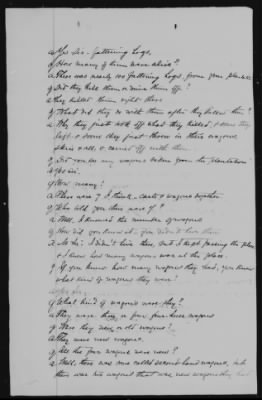 a Yes sir. fattening hogs.
q How many of them were there?
a There was nearly 100 fattening hogs, from your plantation
q Did they kill them or drive them off?
a They killed them right there
q What did they do with them after they killed them?
a They just cut off what they killed, & some they
left & some they just threw in their wagons
skin & all, & carried off with them
q Did you see any wagons taken from the plantation
a Yes sir.
q How many?
a There were 7 I think - carts & wagons together
q Who told you there were 7?
a Well, I knowed the number of wagons
q How did you know it - you didn't live there
a No sir; I didn't live there, but I kept passing the place
& I knew how many wagons were at the place.
q If you knew how many wagons they had, you knew
what kind of wagons they were
a Yes sir
q What kind of wagons were they?
a They were three or four, four-horse wagons
q Were they new or old wagons?
a They were new wagons.
q All the four wagons were new?
a Well, there was one called second hand wagons, but
there was two wagons that was new wagons they had